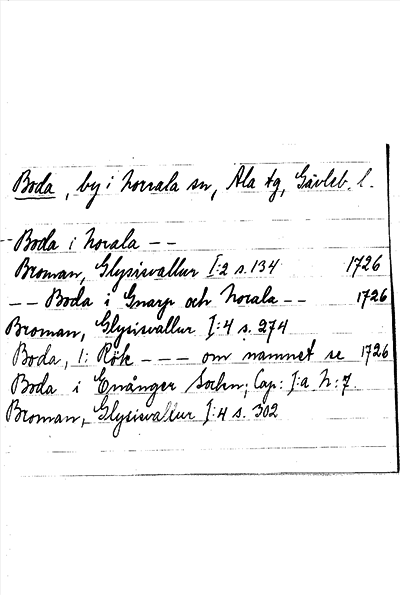 Boda, by i Norrala sn, Ala tg, Gävleb. l.
Boda i Norala --
Broman, Glysisvallur I:2 s. 134 1726
-- Boda i Gnarp och Norala -- 1726
Broman, Glysisvallur I:4 s. 274
Boda, 1: Rök --- om namnet se 1726
Boda i Enånger Sochn; Cap: I:a N: 7.
Broman, Glysisvallur I:4 s. 302